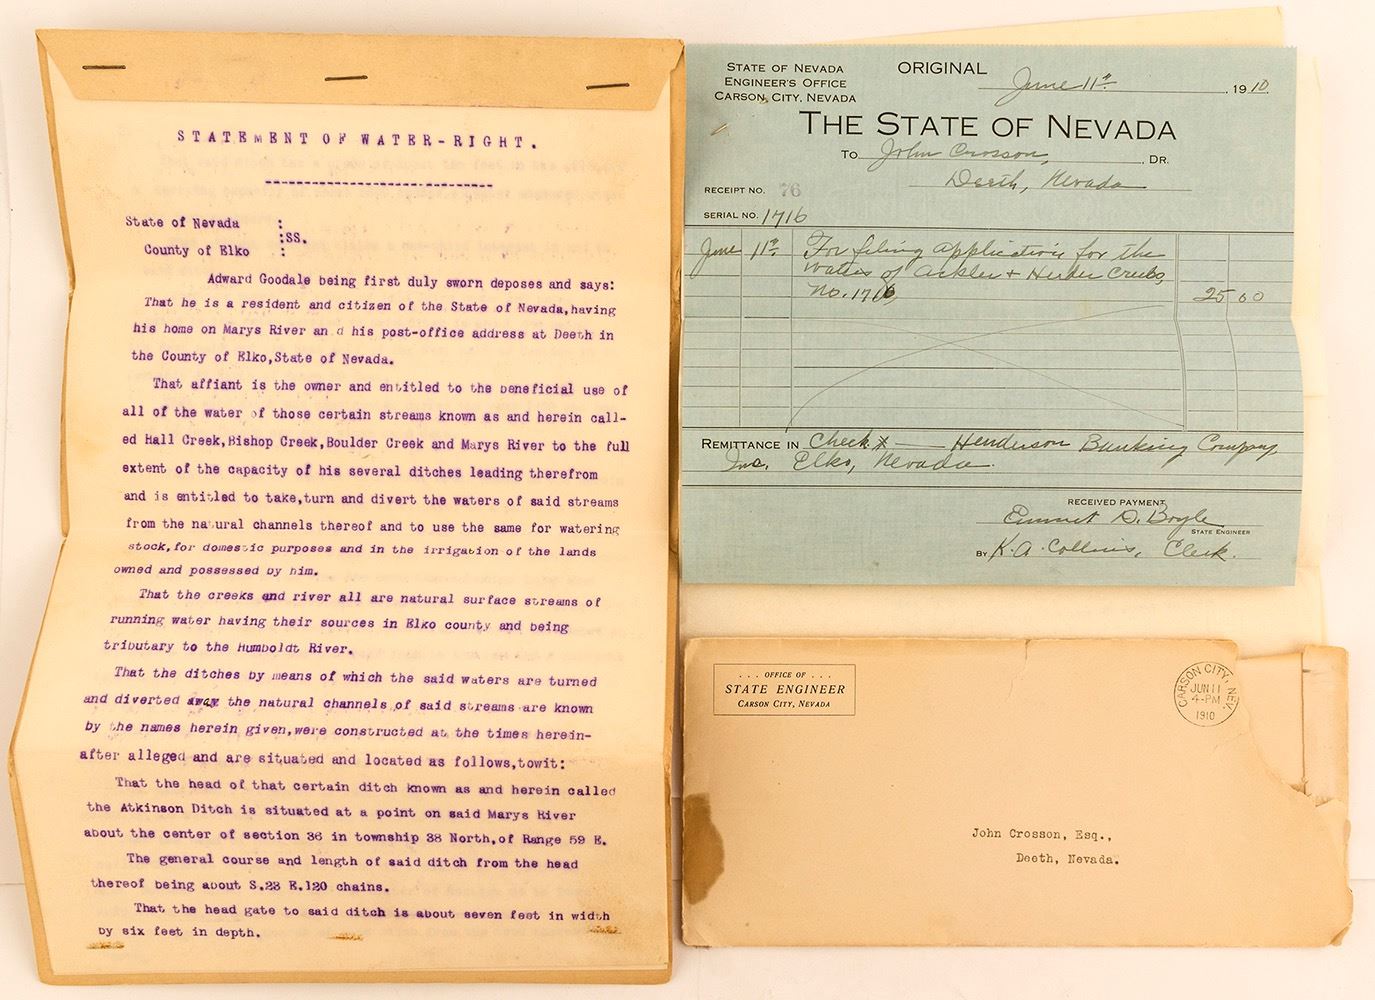 STATEMENT OF WATER-RIGHT.
State of Nevada :
:SS.
County of Elko :
Adward Goodale being first duly sworn deposes and says:
That he is a resident and citizen of the State of Nevada,having
his home on Marys River an d his post-office address at Deeth in
the County of Elko,State of Nevada.
That affiant is the owner and entitled to the beneficial use of
all of the water of those certain streams known as and herein call-
ed Hall Creek,Bishop Creek,Boulder Creek and Marys River to the full
extent of the capacity of his several ditches leading therefrom
and is entitled to take,turn and divert the waters of said streams
from the natural channels thereof and to use the same for watering
stock,for domestic purposes and in the irrigation of the lands
owned and possessed by him.
That the creeks and river all are natural surface streams of
running water having their sources in Elko county and being
tributary to the Humboldt River.
That the ditches by means of which the said waters are turned
and diverted away the natural channels of said streams are known
by the names herein given,were constructed at the times herein-
after alleged and are situated and located as follows,towit:
That the head of that certain ditch known as and herein called
the Atkinson Ditch is situated at a point on said Marys River
about the center of section 36 in township 38 North,of Range 59 E.
The general course and length of said ditch from the head
thereof being about S.23 E.120 chains.
That the head gate to said ditch is about seven feet in width
by six feet in depth.
STATE OF NEVADA
ENGINEER'S OFFICE
CARSON CITY, NEVADA
ORIGINAL
June 11th, 1910.
THE STATE OF NEVADA
TO John Crosson, , DR.
Deeth, Nevada
RECEIPT NO. 76
SERIAL NO. 1716
June 11th For filing application for the
waters of & Creeks,
No. 1716, 25 00
REMITTANCE IN Check # — Henderson Banking Company
Inc. Elko, Nevada.
RECEIVED PAYMENT,
Emmet D. Boyle
STATE ENGINEER
BY K. A. Collins, Clerk.
... OFFICE OF ...
STATE ENGINEER
CARSON CITY, NEVADA
CARSON CITY, NEV.
JUN 11
4-PM
1910
John Crosson, Esq.,
Deeth, Nevada.